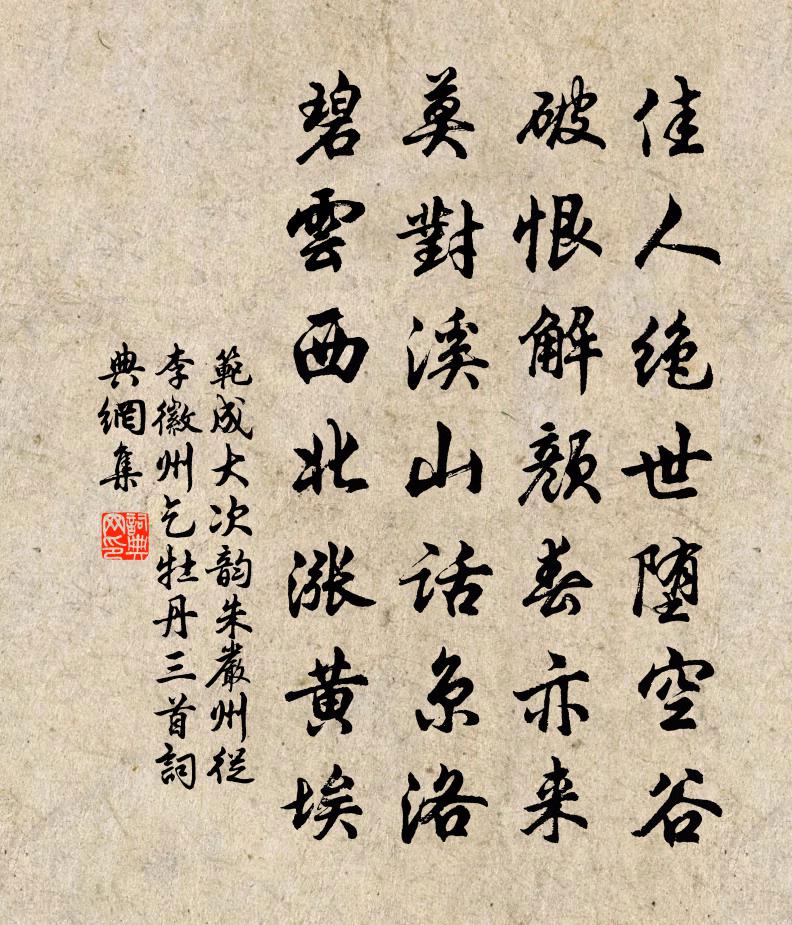 佳人绝世堕空谷
破恨解颜春亦来
莫對溪山話京洛
碧雲西北漲黄埃
範成大次韵朱嚴州從
李徽州乞牡丹三首詞
典網集
詞典
网印